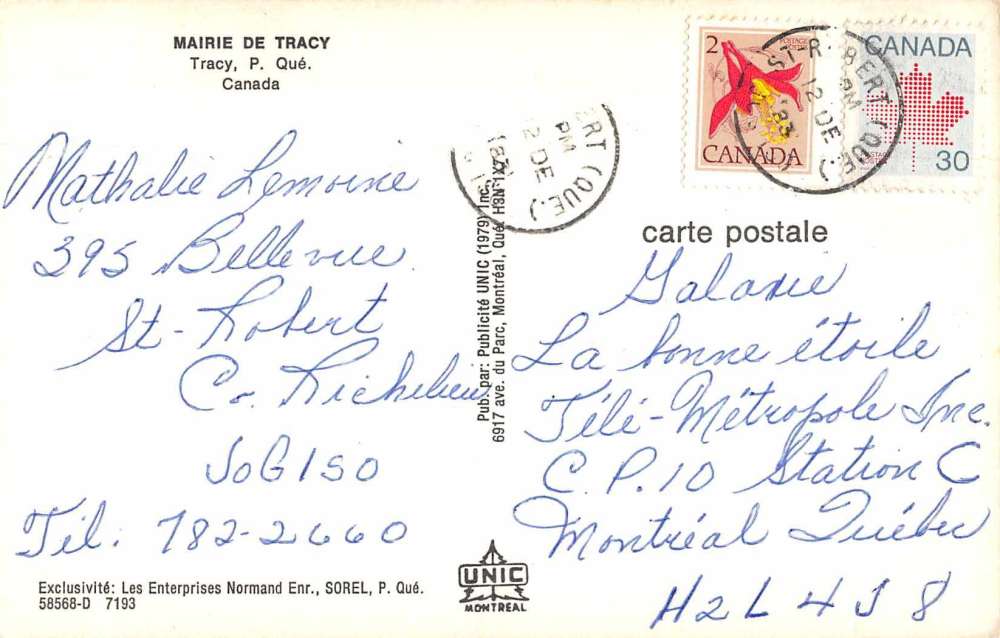 MAIRIE DE TRACY
Tracy, P. Qué.
Canada
Mathalie Lemoine
395 Bellevue
St-Robert
Co. Richelieu
JoG1SO
Tél: 782-2660
Exclusivité: Les Enterprises Normand Enr., SOREL, P. Qué.
58568-D 7193
Pub. par: Publicité UNIC (1979) Inc.
6917 ave. du Parc, Montréal, Qué. H3N 1X
UNIC
MONTREAL
ERT (QUE.)
PM
2 DE
2
CANADA
ST-ROBERT (QUE.)
PM
12 DE
83
CANADA
POSTAGE
30
carte postale
Galaxie
La bonne étoile
Télé-Métropole Inc.
C.P. 10 Station C
Montréal Québec
H2L 4J8